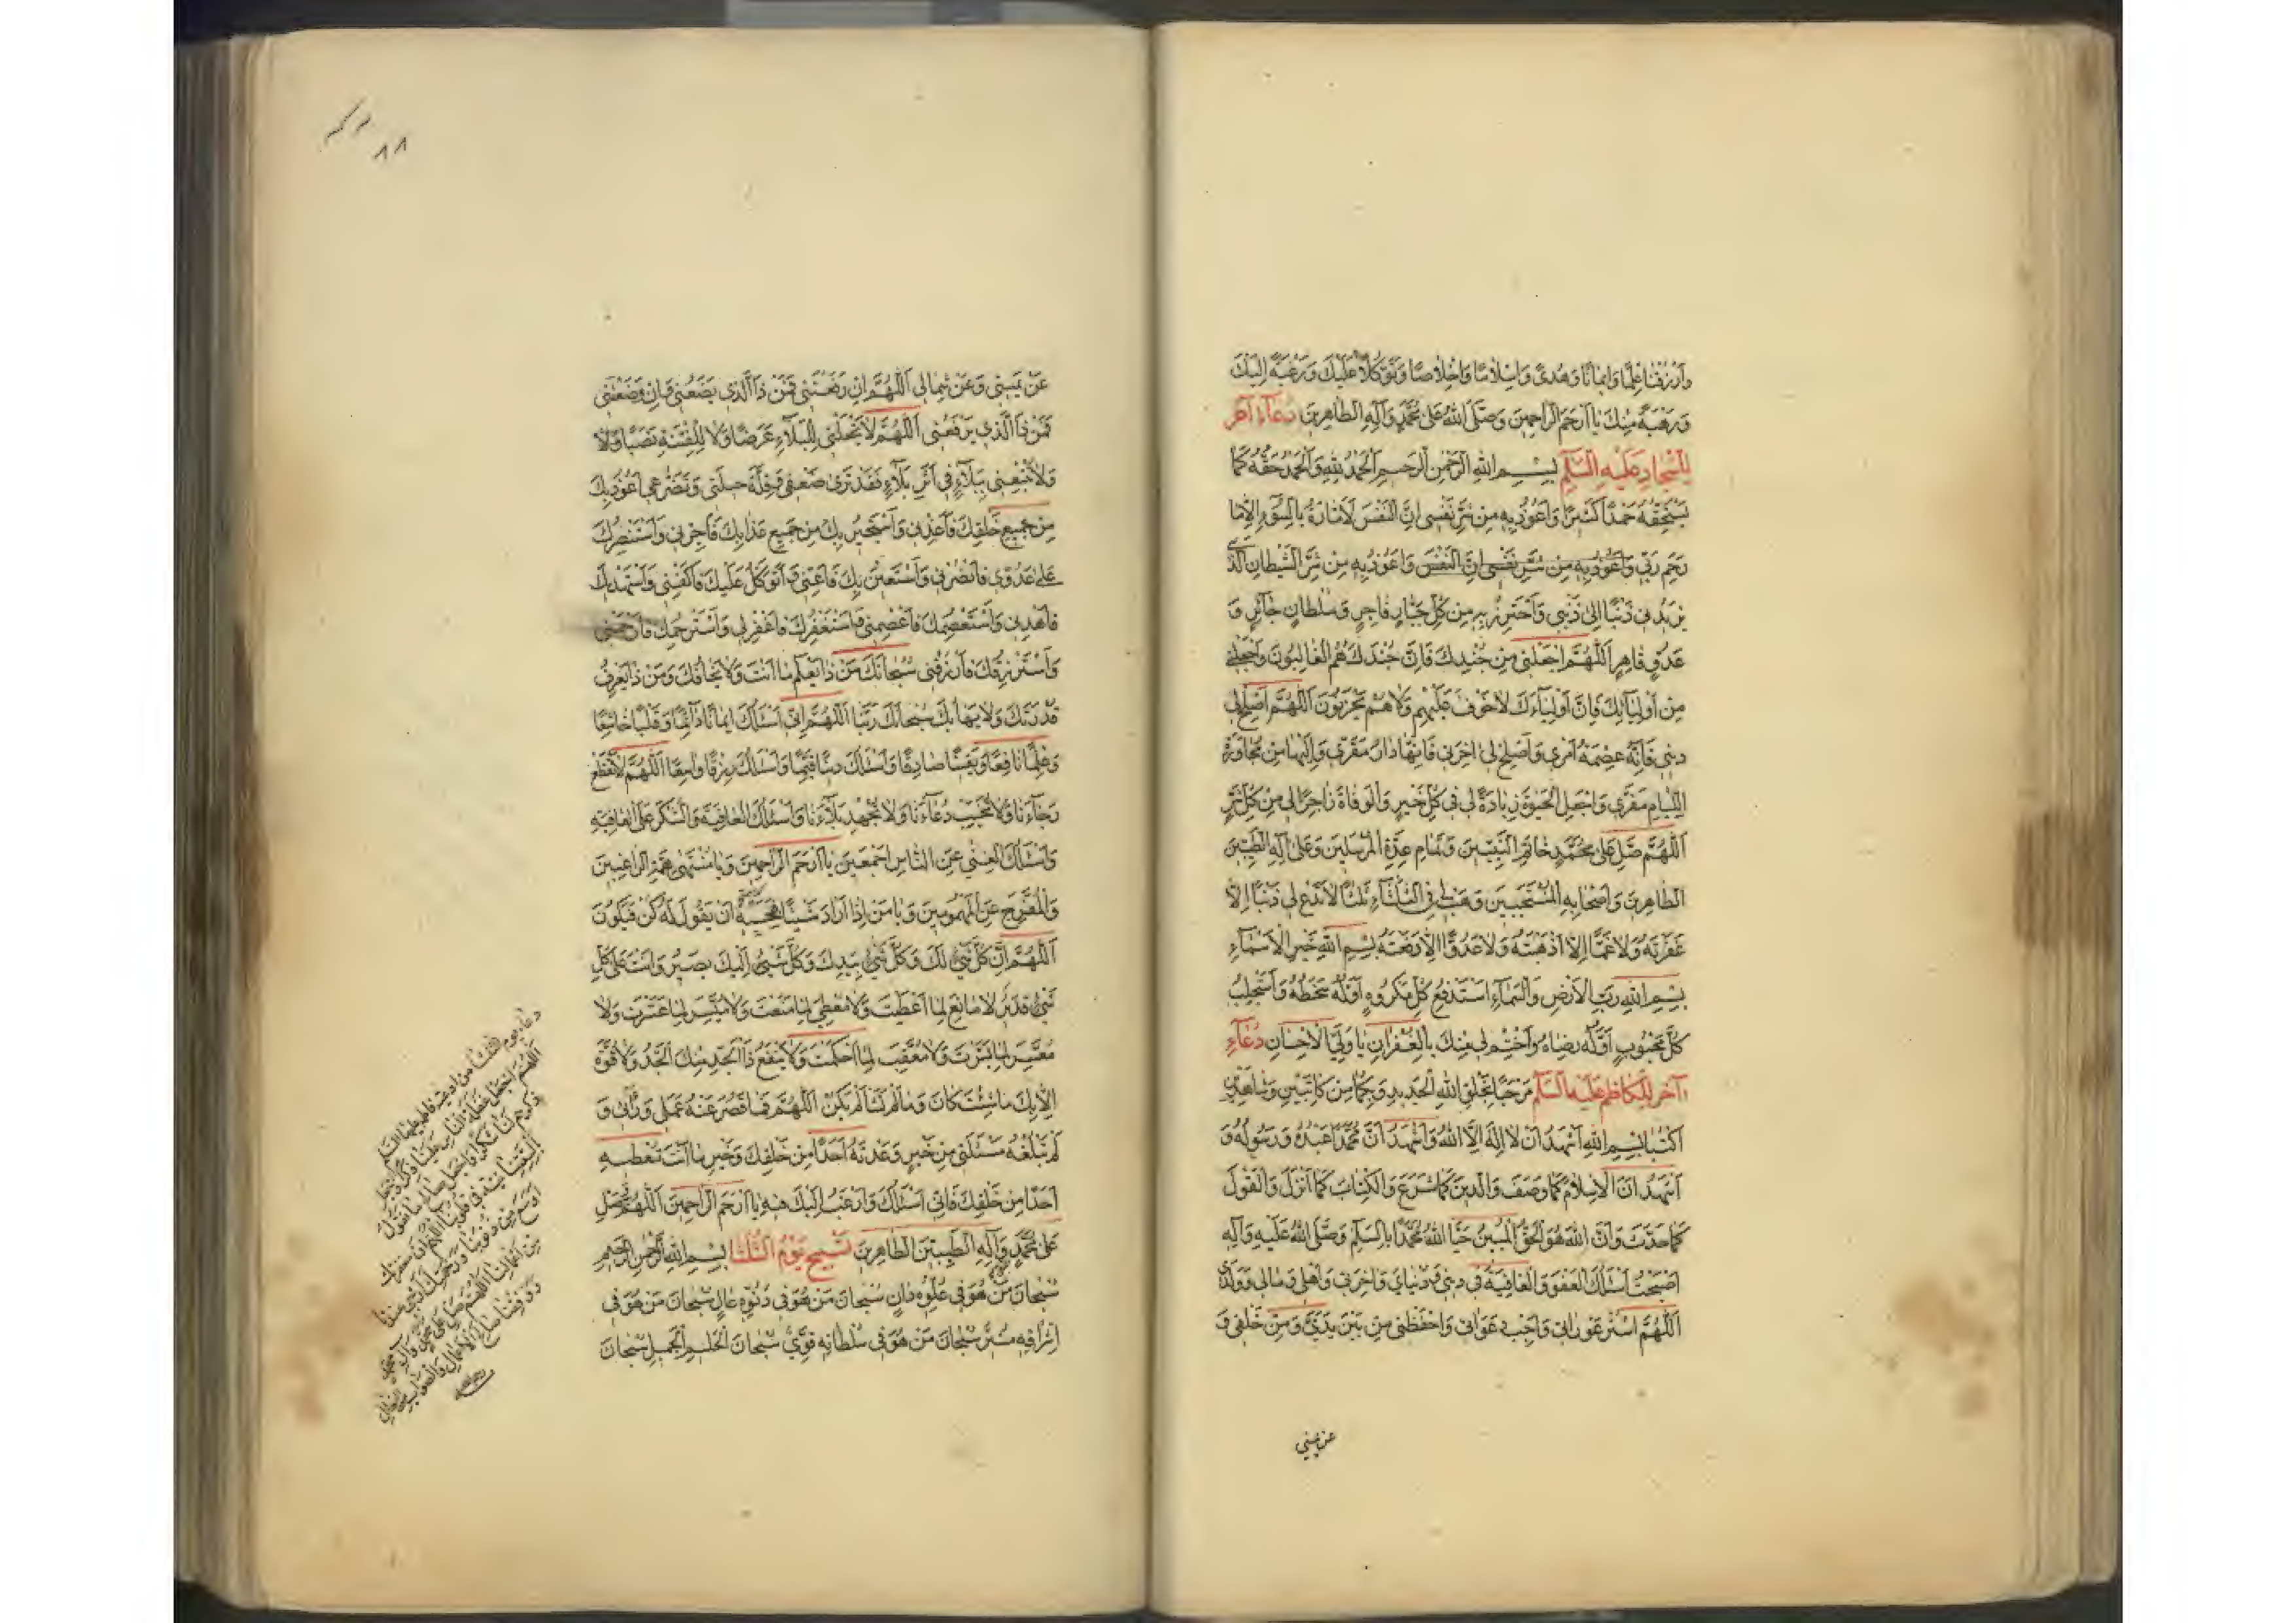 وَارْزُقْنا عِلْمًا وَايمانًا وَهُدىً وَاِسْلامًا وَاِخْلاصًا وَتَوَكُّلاً عَلَيْكَ وَرَغْبَةً اِلَيْكَ
وَرَهْبَةً مِنْكَ يا اَرْحَمَ الرّاحِمينَ وَصَلَّى اللهُ عَلى مُحَمَّدٍ وَآلِهِ الطّاهِرينَ دُعاءٌ آخَر
لِلسَّجّادِ عَلَيْهِ السَّلام بِسْمِ اللهِ الرَّحْمنِ الرَّحيمِ اَلْحَمْدُ لِلّهِ وَالْحَمْدُ حَقُّهُ كَما
يَسْتَحِقُّهُ حَمْدًا كَثيرًا وَاَعُوذُ بِهِ مِنْ شَرِّ نَفْسي اِنَّ النَّفْسَ لَاَمّارَةٌ بِالسُّوءِ اِلاّ ما
رَحِمَ رَبّي وَاَعُوذُ بِهِ مِنْ شَرِّ نَفْسي اِنَّ النَّفْسَ وَاَعُوذُ بِهِ مِنْ شَرِّ الشَّيْطانِ الَّذي
يَزيدُني ذَنْبًا اِلى ذَنْبي وَاَحْتَرِزُ بِهِ مِنْ كُلِّ جَبّارٍ فاجِرٍ وَسُلْطانٍ جائِرٍ وَ
عَدُوٍّ قاهِرٍ اَللّهُمَّ اجْعَلْني مِنْ جُنْدِكَ فَاِنَّ جُنْدَكَ هُمُ الْغالِبُونَ وَاجْعَلْني
مِنْ اَوْلِيائِكَ فَاِنَّ اَوْلِياءَكَ لا خَوْفٌ عَلَيْهِمْ وَلا هُمْ يَحْزَنُونَ اَللّهُمَّ اَصْلِحْ لي
ديني فَاِنَّهُ عِصْمَةُ اَمْري وَاَصْلِحْ لي آخِرَتي فَاِنَّها دارُ مَقَرّي وَاِلَيْها مِنْ مُجاوَرَةِ
اللِّئامِ مَفَرّي وَاجْعَلِ الْحَيوةَ زِيادَةً لي في كُلِّ خَيْرٍ وَالْوَفاةَ راحَةً لي مِنْ كُلِّ شَرٍّ
اَللّهُمَّ صَلِّ عَلى مُحَمَّدٍ خاتَمِ النَّبِيّينَ وَتَمامِ عِدَّةِ الْمُرْسَلينَ وَعَلى آلِهِ الطَّيِّبينَ
الطّاهِرينَ وَاَصْحابِهِ الْمُنْتَجَبينَ وَهَبْ لي فِي الثَّلثاءِ ثَلثًا لا تَدَعْ لي ذَنْبًا اِلاّ
غَفَرْتَهُ وَلا غَمًّا اِلاّ اَذْهَبْتَهُ وَلا عَدُوًّا اِلاّ دَفَعْتَهُ بِسْمِ اللهِ خَيْرِ الْاَسْماءِ
بِسْمِ اللهِ رَبِّ الْاَرْضِ وَالسَّماءِ اَسْتَدْفِعُ كُلَّ مَكْرُوهٍ اَوَّلُهُ سَخَطُهُ وَاَسْتَجْلِبُ
كُلَّ مَحْبُوبٍ اَوَّلُهُ رِضاهُ وَاخْتِمْ لي مِنْكَ بِالْغُفْرانِ يا وَلِيَّ الْاِحْسانِ دُعاءٌ
آخَر لِلْكاظِمِ عَلَيْهِ السَّلام مَرْحَبًا بِخَلْقِ اللهِ الْجَديدِ وَبِكُما مِنْ كاتِبَيْنِ وَشاهِدَيْنِ
اُكْتُبا بِسْمِ اللهِ اَشْهَدُ اَنْ لا اِلهَ اِلاَّ اللهُ وَاَشْهَدُ اَنَّ مُحَمَّدًا عَبْدُهُ وَرَسُولُهُ وَ
اَشْهَدُ اَنَّ الْاِسْلامَ كَما وَصَفَ وَالدّينَ كَما شَرَعَ وَالْكِتابَ كَما اَنْزَلَ وَالْقَوْلَ
كَما حَدَّثَ وَاَنَّ اللهَ هُوَ الْحَقُّ الْمُبينُ حَيَّا اللهُ مُحَمَّدًا بِالسَّلامِ وَصَلَّى اللهُ عَلَيْهِ وَآلِهِ
اَصْبَحْتُ اَسْئَلُكَ الْعَفْوَ وَالْعافِيَةَ في ديني وَدُنْيايَ وَآخِرَتي وَاَهْلي وَمالي وَوَلَدي
اَللّهُمَّ اسْتُرْ عَوْراتي وَاَجِبْ دَعَواتي وَاحْفَظْني مِنْ بَيْنِ يَدَيَّ وَمِنْ خَلْفي وَ
عن يميني
٨٨
عَنْ يَميني وَعَنْ شِمالي اَللّهُمَّ اِنْ رَفَعْتَني فَمَنْ ذَا الَّذي يَضَعُني وَاِنْ وَضَعْتَني
فَمَنْ ذَا الَّذي يَرْفَعُني اَللّهُمَّ لا تَجْعَلْني لِلْبَلاءِ غَرَضًا وَلا لِلْفِتْنَةِ نَصَبًا وَلا
وَلا تُتْبِعْني بِبَلاءٍ في اَثَرِ بَلاءٍ فَقَدْ تَرى ضَعْفي وَقِلَّةَ حيلَتي وَتَضَرُّعي اَعُوذُ بِكَ
مِنْ جَميعِ خَلْقِكَ فَاَعِذْني وَاَسْتَجيرُ بِكَ مِنْ جَميعِ عَذابِكَ فَاَجِرْني وَاَسْتَنْصِرُكَ
عَلى عَدُوّي فَانْصُرْني وَاَسْتَعينُ بِكَ فَاَعِنّي وَاَتَوَكَّلُ عَلَيْكَ فَاكْفِني وَاَسْتَهْديكَ
فَاهْدِني وَاَسْتَعْصِمُكَ فَاعْصِمْني وَاَسْتَغْفِرُكَ فَاغْفِرْ لي وَاَسْتَرْحِمُكَ فَارْحَمْني
وَاَسْتَرْزِقُكَ فَارْزُقْني سُبْحانَكَ مَنْ ذا يَعْلَمُ ما اَنْتَ وَلا يَخافُكَ وَمَنْ ذا يَعْرِفُ
قُدْرَتَكَ وَلا يَهابُكَ سُبْحانَكَ رَبَّنا اَللّهُمَّ اِنّي اَسْئَلُكَ ايمانًا دائِمًا وَقَلْبًا خاشِعًا
وَعِلْمًا نافِعًا وَيَقينًا صادِقًا وَاَسْئَلُكَ دينًا قَيِّمًا وَاَسْئَلُكَ رِزْقًا واسِعًا اَللّهُمَّ لا تَقْطَعْ
رَجاءَنا وَلا تُخَيِّبْ دُعاءَنا وَلا تُجْهِدْ بَلاءَنا وَاَسْئَلُكَ الْعافِيَةَ وَالشُّكْرَ عَلَى الْعافِيَةِ
وَاَسْئَلُكَ الْغِنى عَنِ النّاسِ اَجْمَعينَ يا اَرْحَمَ الرّاحِمينَ وَيا مُنْتَهى هِمَّةِ الرّاغِبينَ
وَالْمُفَرِّجَ عَنِ الْمَهْمُومينَ وَيا مَنْ اِذا اَرادَ شَيْئًا فَحَسْبُهُ اَنْ يَقُولَ لَهُ كُنْ فَيَكُونُ
اَللّهُمَّ اِنَّ كُلَّ شَيْءٍ لَكَ وَكُلَّ شَيْءٍ بِيَدِكَ وَكُلَّ شَيْءٍ اِلَيْكَ يَصيرُ وَاَنْتَ عَلى كُلِّ
شَيْءٍ قَديرٌ لا مانِعَ لِما اَعْطَيْتَ وَلا مُعْطِيَ لِما مَنَعْتَ وَلا مُيَسِّرَ لِما عَسَّرْتَ وَلا
مُعَسِّرَ لِما يَسَّرْتَ وَلا مُعَقِّبَ لِما حَكَمْتَ وَلا يَنْفَعُ ذَا الْجَدِّ مِنْكَ الْجَدُّ وَلا قُوَّةَ
اِلاّ بِكَ ما شِئْتَ كانَ وَما لَمْ تَشَأْ لَمْ يَكُنْ اَللّهُمَّ فَما قَصُرَ عَنْهُ عَمَلي وَرَأْيي وَ
لَمْ تَبْلُغْهُ مَسْئَلَتي مِنْ خَيْرٍ وَعَدْتَهُ اَحَدًا مِنْ خَلْقِكَ وَخَيْرٍ ما اَنْتَ تُعْطيهِ
اَحَدًا مِنْ خَلْقِكَ فَاِنّي اَسْئَلُكَ وَاَرْغَبُ اِلَيْكَ فيهِ يا اَرْحَمَ الرّاحِمينَ اَللّهُمَّ صَلِّ
عَلى مُحَمَّدٍ وَآلِهِ الطَّيِّبينَ الطّاهِرينَ تَسْبيحُ يَوْمِ الثَّلثا بِسْمِ اللهِ الرَّحْمنِ الرَّحيمِ
سُبْحانَ مَنْ هُوَ في عُلُوِّهِ دانٍ سُبْحانَ مَنْ هُوَ في دُنُوِّهِ عالٍ سُبْحانَ مَنْ هُوَ في
اِشْراقِهِ مُنيرٌ سُبْحانَ مَنْ هُوَ في سُلْطانِهِ قَوِيٌّ سُبْحانَ الْحَليمِ الْجَميلِ سُبْحانَ
دعاء يوم الثلثا من ادعية فاطمة عليها السلام
اللهم اجعل غفلة الناس لنا ذكرا واجعل
ذكرهم لنا شكرا واجعل صالح ما نقول
بالسنتنا نية في قلوبنا اللهم ان مغفرتك
اوسع من ذنوبنا ورحمتك ارجى عندنا
من اعمالنا اللهم صل على محمد وآل محمد
ووفقنا لصالح الاعمال والصواب من الفعال